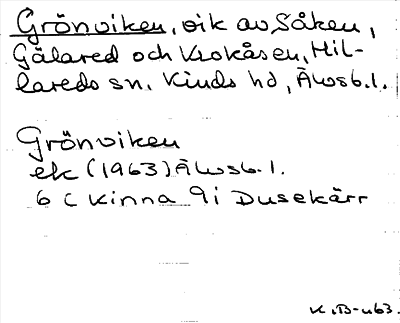 Grönviken, vik av Såken,
Gälared och Krokåsen, Hil-
lareds sn. Kinds hd, Älvsb.l.
Grönviken
ek (1963) Älvsb.l.
6 C Kinna 9i Dusekärr
K.B-u63.